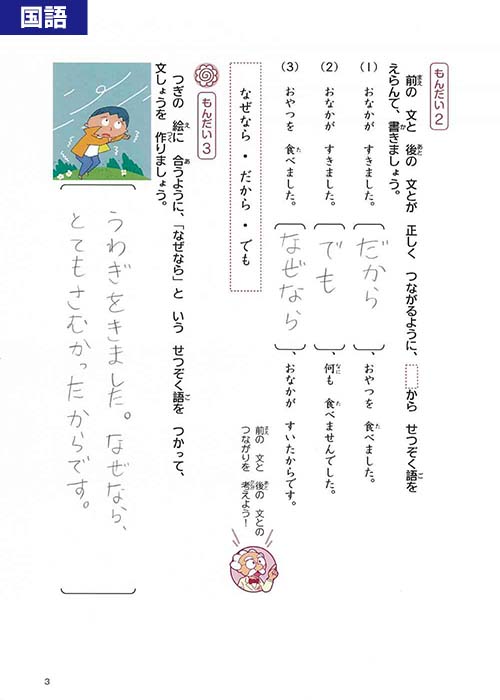 国語
もんだい2
前の 文と 後の 文とが 正しく つながるように、 から せつぞく語を
えらんで、書きましょう。
(1) おなかが すきました。(だから)、おやつを 食べました。
(2) おなかが すきました。(でも)、何も 食べませんでした。
(3) おやつを 食べました。(なぜなら)、おなかが すいたからです。
なぜなら・だから・でも
前の 文と 後の 文との
つながりを 考えよう!
もんだい3
つぎの 絵に 合うように、「なぜなら」と いう せつぞく語を つかって、
文しょうを 作りましょう。
うわぎをきました。なぜなら、
とてもさむかったからです。
3